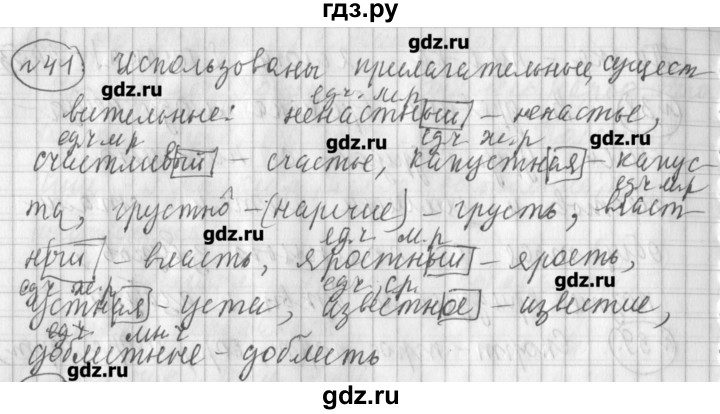 гдз.ру
gdz.ru
gdz.ru
№41. Использованы прилагательные, сущест
ед.ч. м.р
вительные: ненастный – ненастье,
gdz.ru
gdz.ru
ед.ч м.р ед.ч ж.р
счастливый – счастье, капустная – капус
ед.ч м.р
та, грустно – (наречие) – грусть, власт
gdz.ru
gdz.ru
ед.ч м.р
ный – власть, яростный – ярость,
gdz.ru
ед.ч ж.р ед.ч, ср.
устная – уста, известное – известие,
ед.ч мн.ч
доблестные – доблесть
gdz.ru
gdz.ru